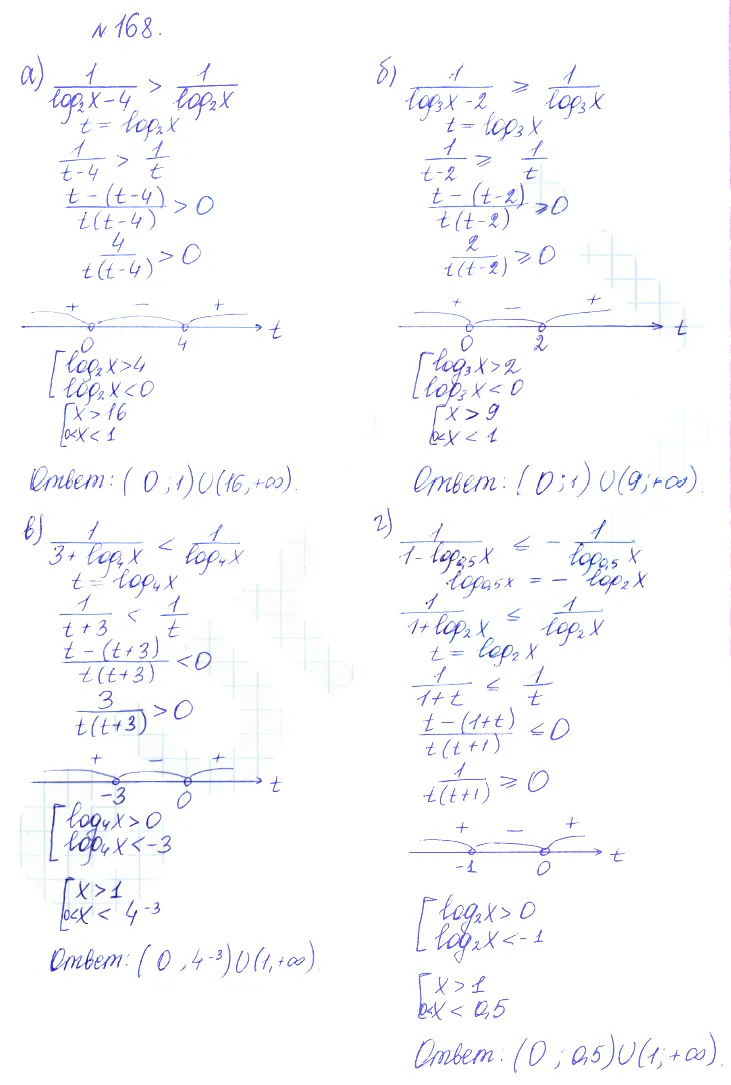 №168.
а) 1/(log₂x-4) > 1/log₂x
t = log₂x
1/(t-4) > 1/t
(t-(t-4))/(t(t-4)) > 0
4/(t(t-4)) > 0
+ - +
0 4 t
[log₂x>4
log₂x<0
[x>16
0<x<1
Ответ: (0;1)∪(16,+∞).
б) 1/(log₃x-2) ⩾ 1/log₃x
t = log₃x
1/(t-2) ⩾ 1/t
(t-(t-2))/(t(t-2)) ⩾0
2/(t(t-2)) ⩾ 0
+ - +
0 2 t
[log₃x>2
log₃x<0
[x>9
0<x<1
Ответ: (0;1)∪(9;+∞).
в) 1/(3+log₄x) < 1/log₄x
t = log₄x
1/(t+3) < 1/t
(t-(t+3))/(t(t+3)) <0
3/(t(t+3)) >0
+ - +
-3 0 t
[log₄x>0
log₄x<-3
[x>1
0<x< 4⁻³
Ответ: (0,4⁻³)∪(1,+∞).
г) 1/(1-log₀,₅x) ⩽ - 1/log₀,₅x
log₀,₅x = - log₂x
1/(1+log₂x) ⩽ 1/log₂x
t = log₂x
1/(1+t) ⩽ 1/t
(t-(1+t))/(t(t+1)) ⩽0
1/(t(t+1)) ⩾ 0
+ - +
-1 0 t
[log₂x>0
log₂x<-1
[x>1
0<x<0,5
Ответ: (0; 0,5)∪(1;+∞).